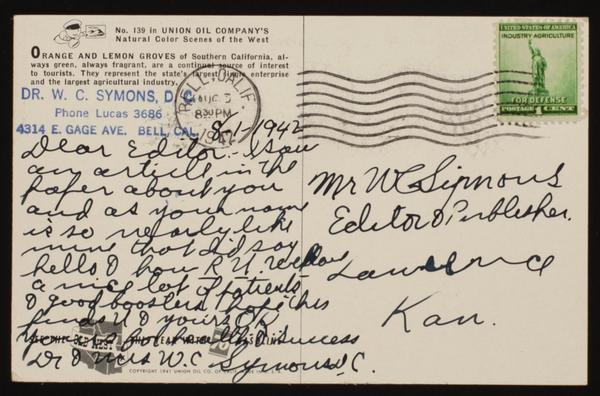 No. 139 in UNION OIL COMPANY'S
Natural Color Scenes of the West
ORANGE AND LEMON GROVES of Southern California, al-
ways green, always fragrant, are a continual source of interest
to tourists. They represent the state's largest single enterprise
and the largest agricultural industry.
DR. W. C. SYMONS, D. C.
Phone Lucas 3686
4314 E. GAGE AVE. BELL, CAL.
BELL, CALIF.
AUG 3
8 30 PM
1942
UNITED STATES OF AMERICA
INDUSTRY AGRICULTURE
FOR DEFENSE
POSTAGE 1 CENT
8/1-1942
Dear Editor. I saw
an article in the
paper about you
and as your name
is so nearly like
mine that I'd say
hello & how R U. We have
a nice lot of patients
& good boosters. Hope this
finds U & yours OK
success
Dr & Mrs W. C. Symons D.C.
Mr W C Simons
Editor & Publisher.
Lawrence
Kan.
SEE THE OLD WEST
COPYRIGHT 1941 UNION OIL CO. OF CALIF.